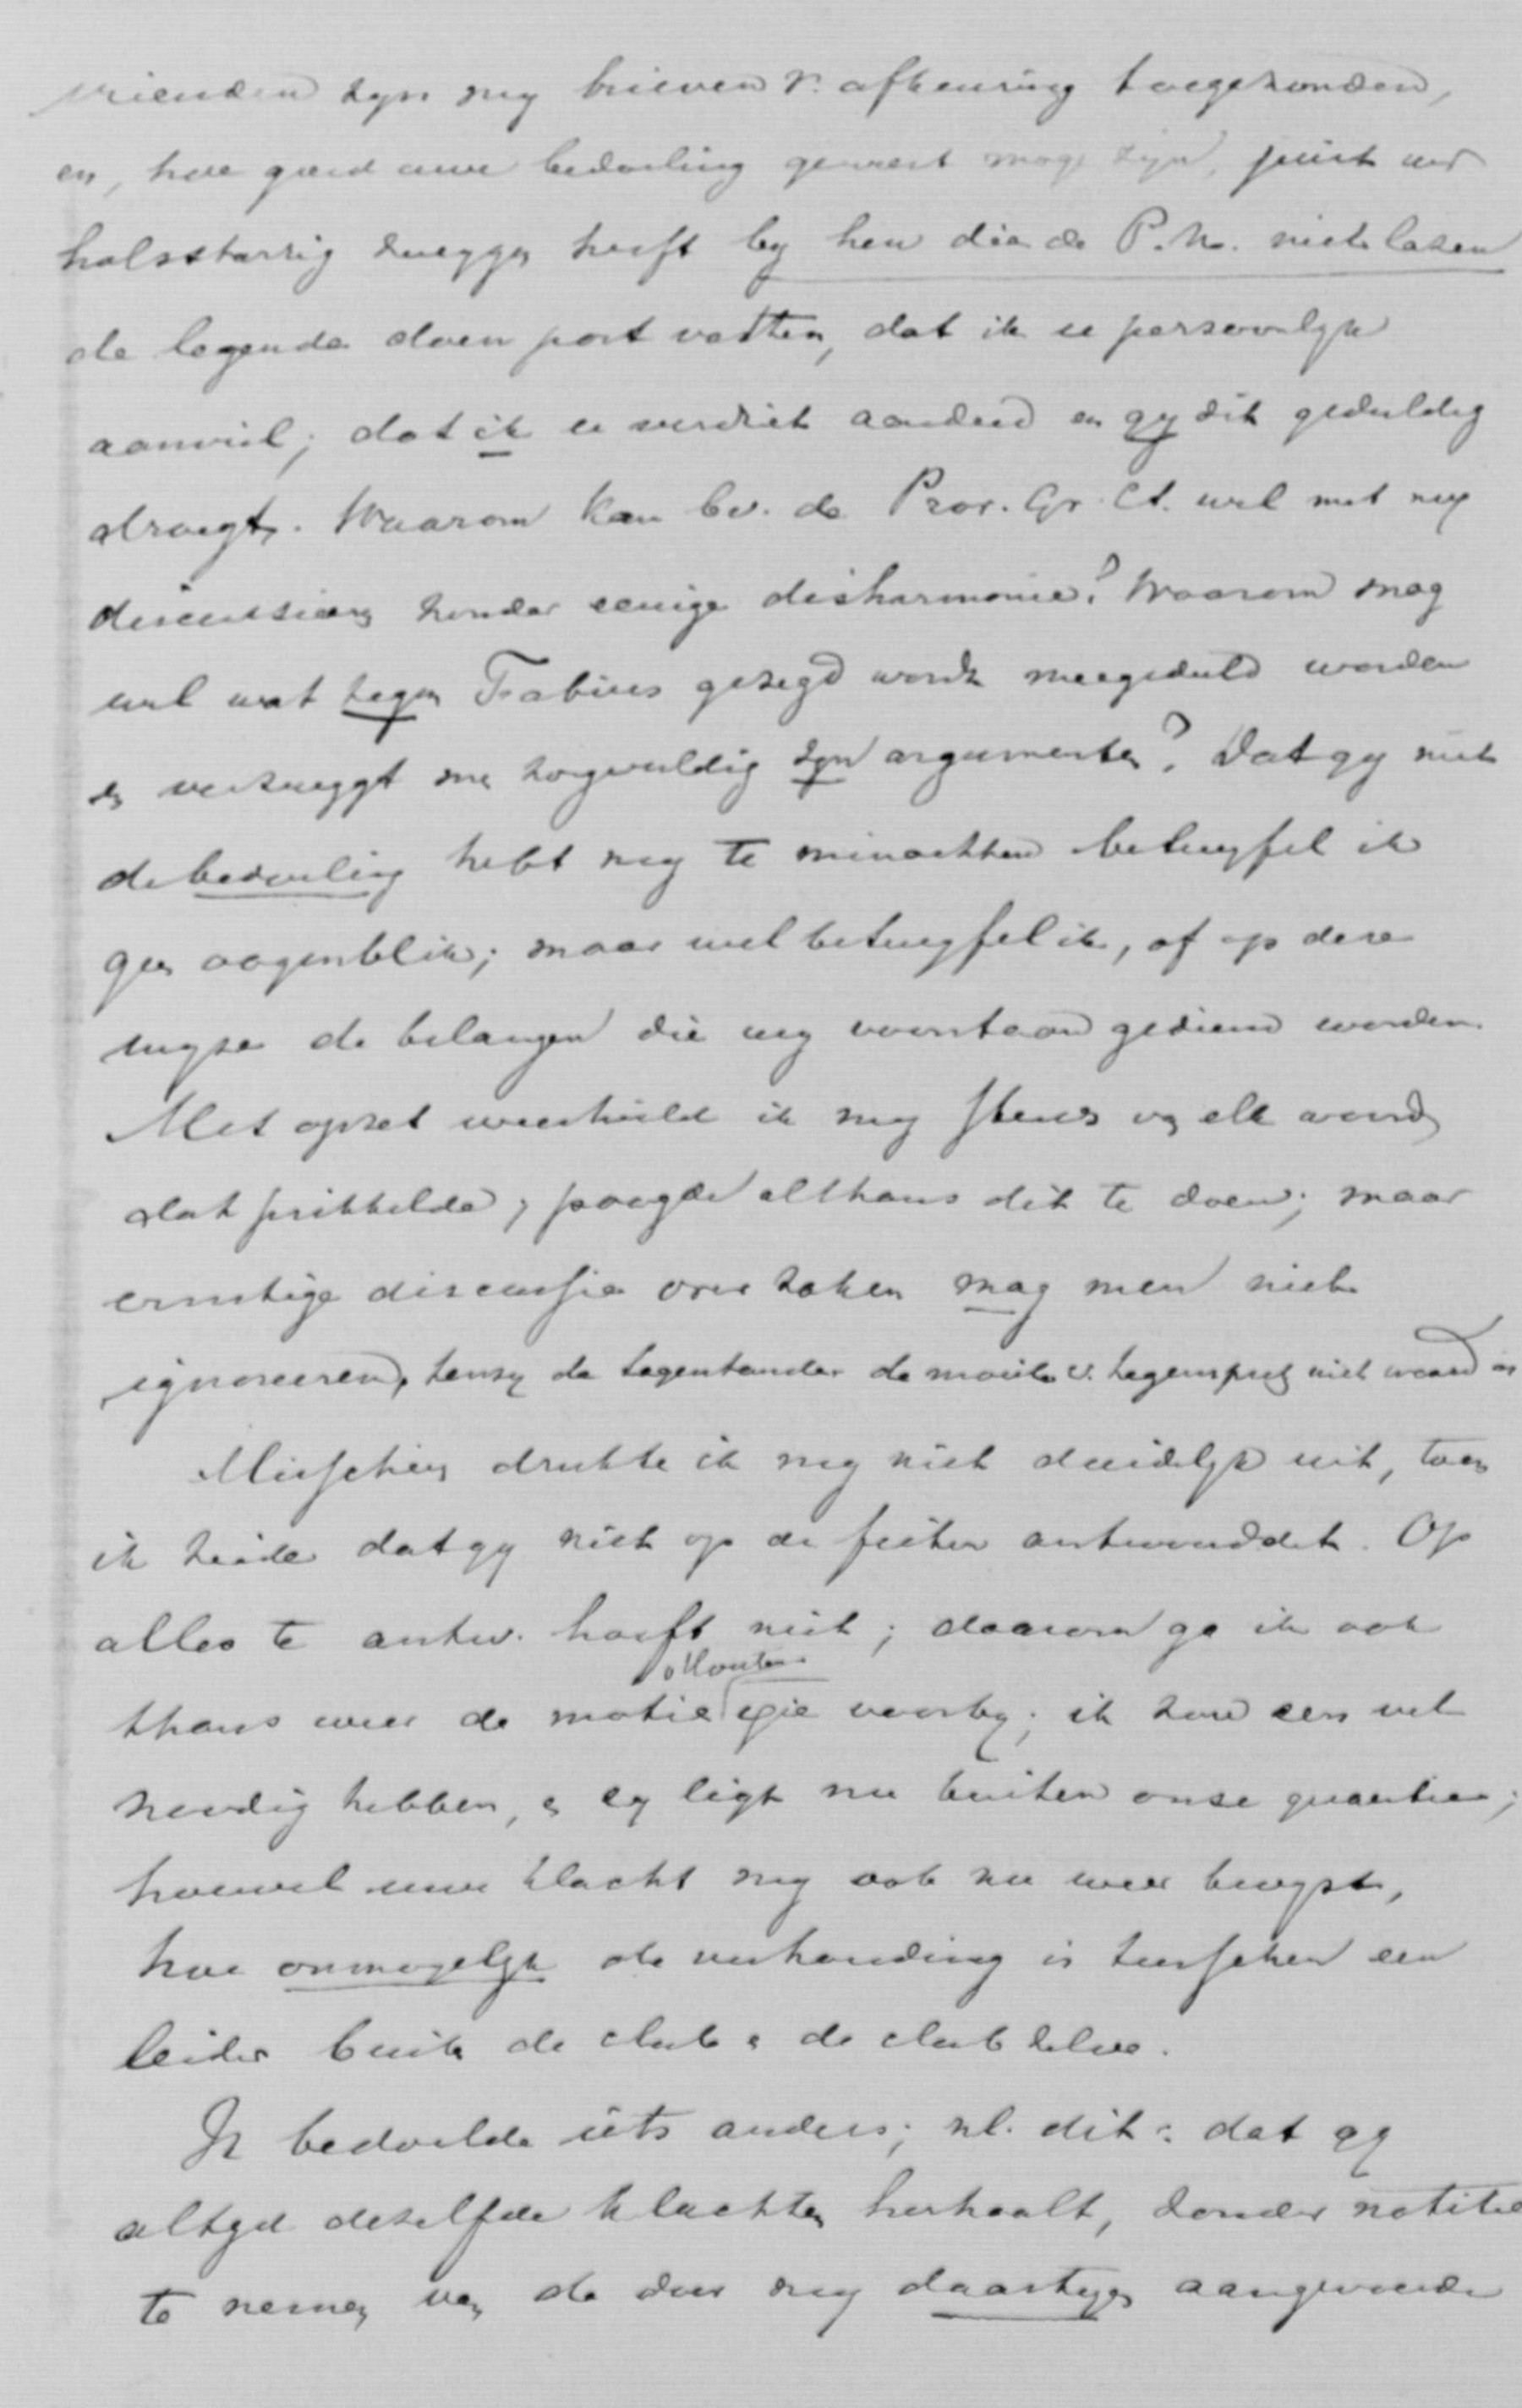 vrienden zyn my brieven v. afkeuring toegezonden,
en, hoe goed uwe bedoeling geweest moge zyn, juist uw
halsstarrig zwygen heeft by hen die de P.N. niet lazen
de legende doen post vatten, dat ik u persoonlyk
aanviel; dat ik u verdriet aandeed en gy dit geduldig
draagt. Waarom kan bv. de Prov. Gr. Ct. wel met my
discussieeren zonder eenige disharmonie? Waarom mag
wel wat tegen Fabius gezegd wordt meegedeeld worden
en verzwygt men zorgvuldig zyn argumenten? Dat gy niet
de bedoeling hebt my te minachten betwyfel ik
geen oogenblik; maar wel betwyfel ik, of op deze
wyze de belangen die wy voorstaan gediend worden.
Met opzet weerhield ik my steeds van elk woord
dat prikkelde; poogde althans dit te doen; maar
ernstige discussie over zaken mag men niet
ignoreeren, tenzy de tegenstander de moeite v. tegenspraak niet waard is
Misschien drukte ik my niet duidelyk uit, toen
ik zeide dat gy niet op de feiten antwoorddet. Op
alles te antw. hoeft niet; daarom ga ik ook
thans weer de motie voorby; ik zou een vel
noodig hebben, en zy ligt nu buiten onze quaestie;
hoewel uwe klacht my ook nu weer bewyst,
hoe onmogelyk de verhouding is tusschen een
leider buiten de club en de club zelve.
Ik bedoelde iets anders; nl. dit: dat gy
altyd dezelfde klachten herhaalt, zonder notitie
te nemen van de door my daartegen aangevoerde